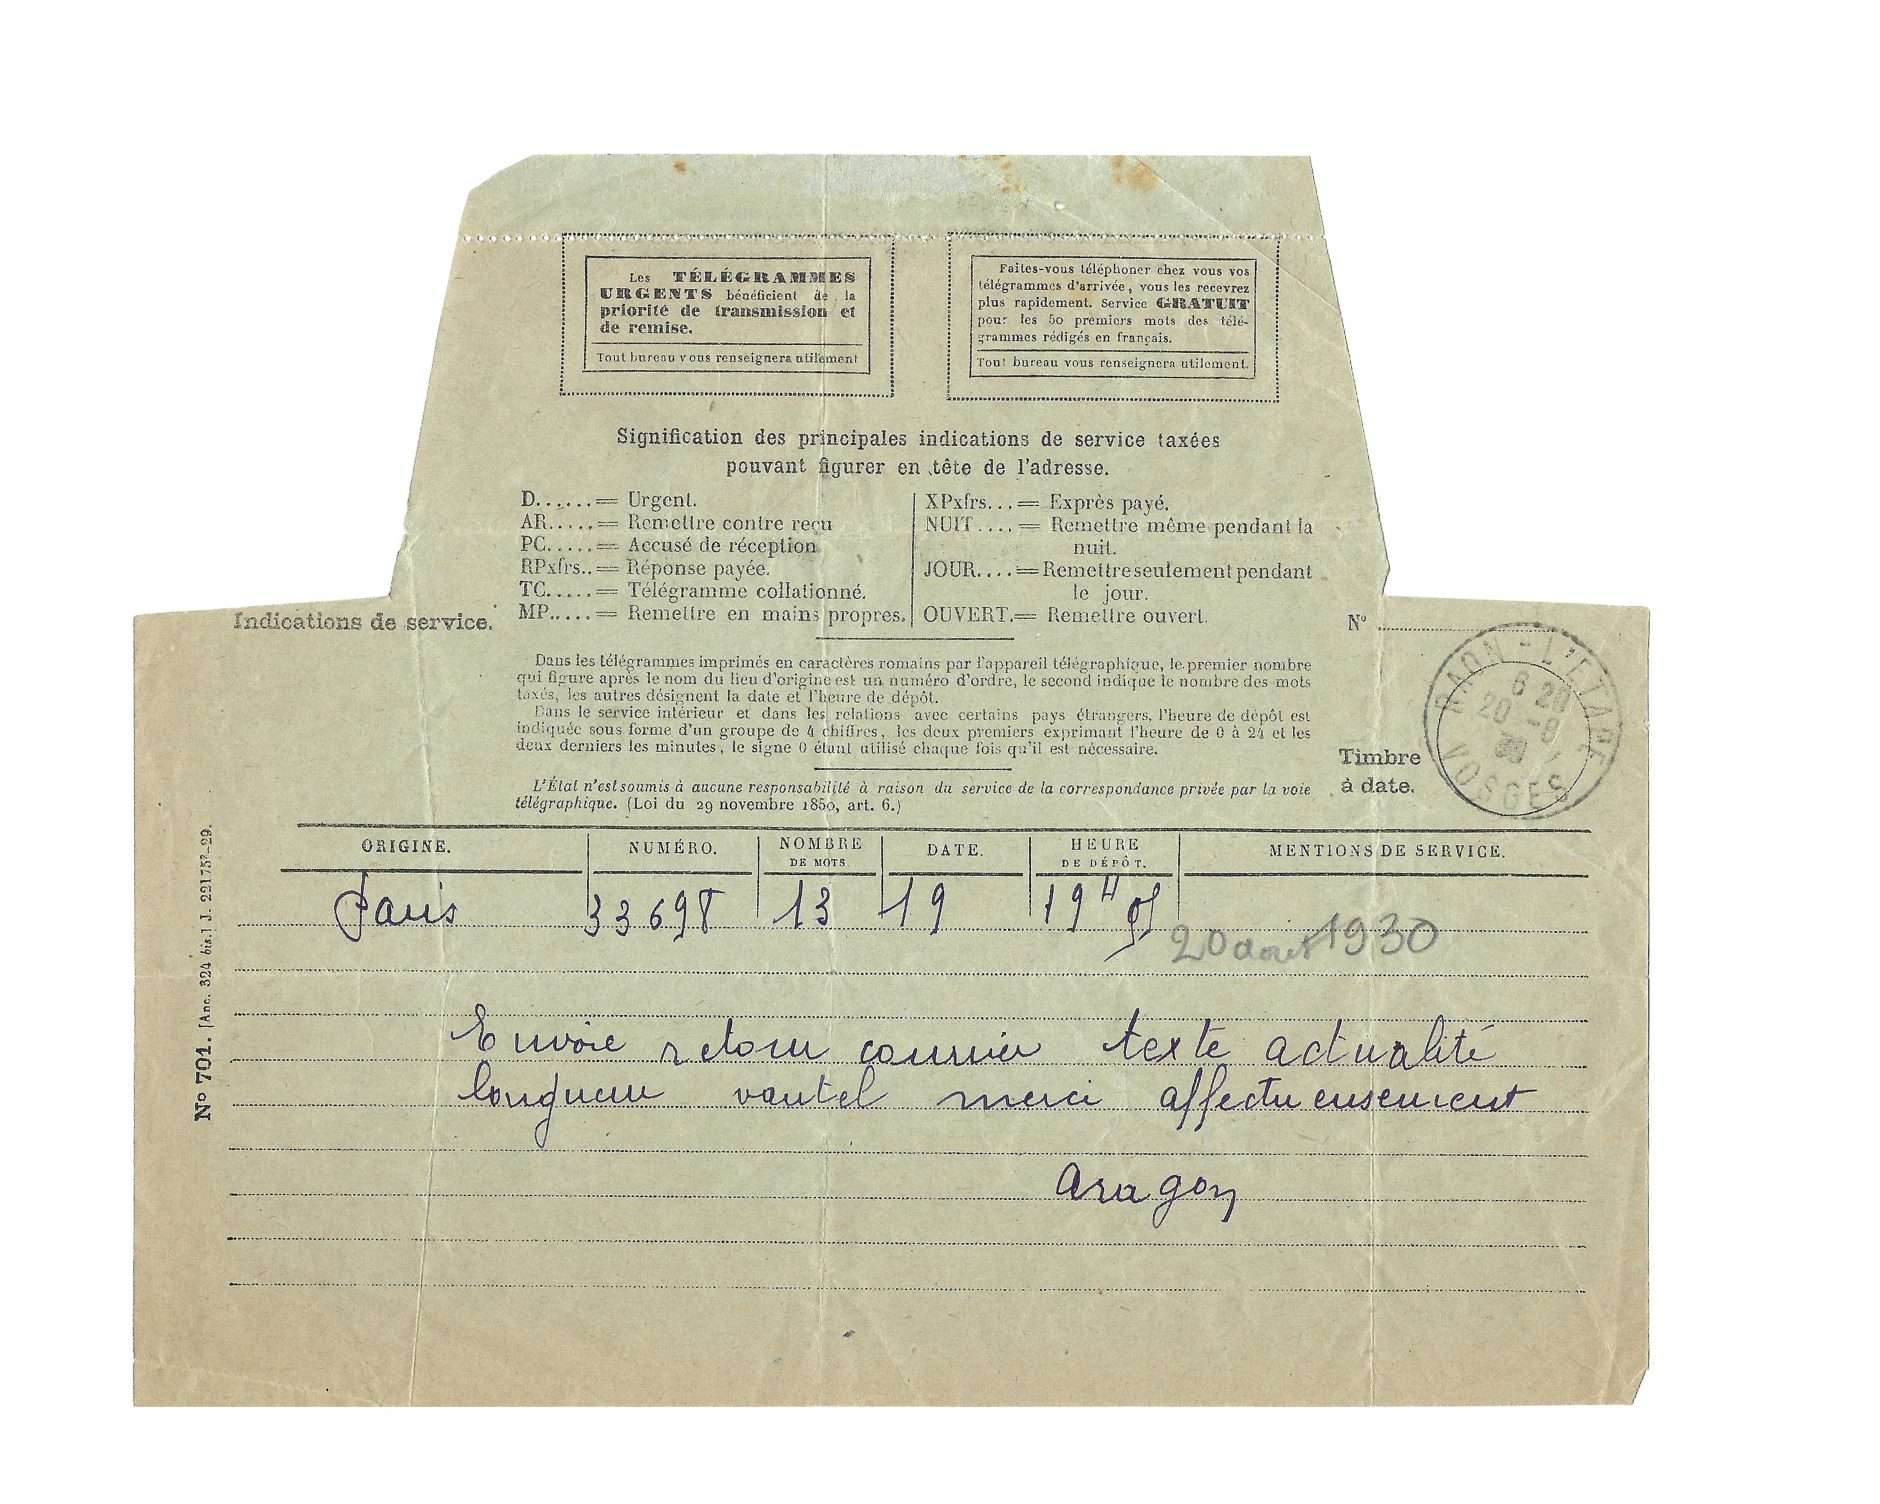 Les TÉLÉGRAMMES
URGENTS bénéficient de la
priorité de transmission et
de remise.
Tout bureau vous renseignera utilement
Faites-vous téléphoner chez vous vos
télégrammes d'arrivée, vous les recevrez
plus rapidement. Service GRATUIT
pour les 50 premiers mots des télé-
grammes rédigés en français.
Tout bureau vous renseignera utilement.
Signification des principales indications de service taxées
pouvant figurer en tête de l'adresse.
D......= Urgent.
AR.....= Remettre contre reçu
PC.....= Accusé de réception
RPxfrs..= Réponse payée.
TC.....= Télégramme collationné.
MP.....= Remettre en mains propres.
XPxfrs...= Exprès payé.
NUIT....= Remettre même pendant la
nuit.
JOUR....= Remettre seulement pendant
le jour.
OUVERT.= Remettre ouvert.
Indications de service.
N°
Dans les télégrammes imprimés en caractères romains par l'appareil télégraphique, le premier nombre
qui figure après le nom du lieu d'origine est un numéro d'ordre, le second indique le nombre des mots
taxés, les autres désignent la date et l'heure de dépôt.
Dans le service intérieur et dans les relations avec certains pays étrangers, l'heure de dépôt est
indiquée sous forme d'un groupe de 4 chiffres, les deux premiers exprimant l'heure de 0 à 24 et les
deux derniers les minutes, le signe 0 étant utilisé chaque fois qu'il est nécessaire.
L'État n'est soumis à aucune responsabilité à raison du service de la correspondance privée par la voie
télégraphique. (Loi du 29 novembre 1850, art. 6.)
Timbre
à date.
RAON-L'ETAPE
6 20
20 -8
30
VOSGES
ORIGINE.
NUMÉRO.
NOMBRE
DE MOTS.
DATE.
HEURE
DE DÉPÔT.
MENTIONS DE SERVICE.
Paris 33698 13 19 19H
20 aout 1930
Envoie retour courrier texte actualité
longueur vautel merci affectueusement
aragon
N° 701. [Anc. 324 bis.] J. 22175²-29.